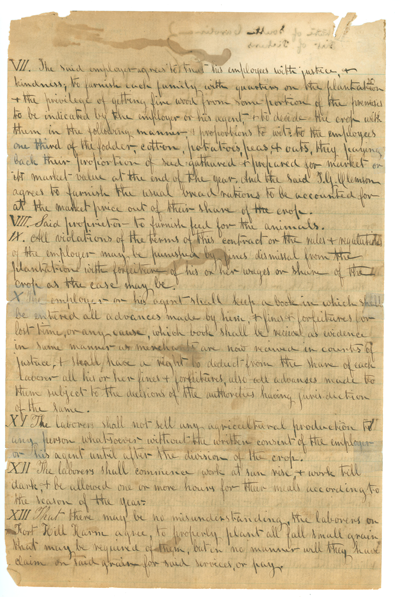 VII. The said employer agrees to treat his employees with justice, &
kindness, to furnish each family with quarters on the plantation
& the privilege of getting fire wood from some portion of the premises
to be indicated by the employer or his agent & to divide the crop with
them in the following manner & proportions to wit to the employees
one third of the fodder, cotton, potatoes, peas & oats, they paying
back their proportion of said gathered & prepared for market or
its market value at the end of the year, and the said T.G. Clemson
agrees to furnish the usual bread rations to be accounted for
at the market price out of their share of the crop.
VIII. Said proprietor to furnish feed for the animals.
IX. All violations of the terms of this contract or the rules & regulations
of the employer may be punished dismissal from the
plantation with forfeiture of his or her wages or share of the
crop as the case may be.
X The employer or his agent shall keep a book in which shall
be entered all advances made by him, & fines & forfeitures for
lost time, or any cause, which book shall be received as evidence
in same manner as merchants are now received in courts of
justice, & shall have a right to deduct from the share of each
laborer all his or her fines & forfeitures, also all advances made to
them subject to the decisions of the authorities having jurisdiction
of the same.
XI The laborers shall not sell any agricultural production to
any person whatsoever without the written consent of the employer
or his agent until after the division of the crop.
XII The laborers shall commence work at sun rise, & work till
dark, & be allowed one or more hours for their meals according to
the season of the year.
XIII That there may be no misunderstanding, the laborers on
Fort Hill Farm agree, to properly plant all fall small grain
that may be required of them, but in no manner will they have
claim on said grain for said services, or pay.